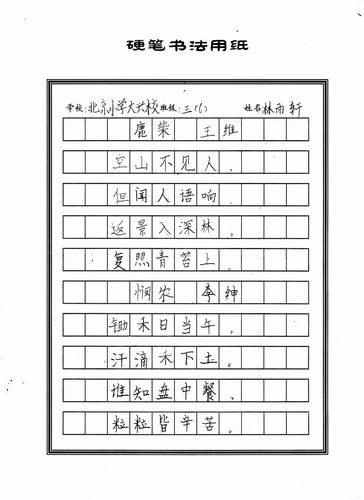 硬笔书法用纸
学校:北京小学大兴校 班级:三(6) 姓名 林雨轩
鹿柴 王维
空山不见人,
但闻人语响。
返景入深林,
复照青苔上。
悯农 李绅
锄禾日当午,
汗滴禾下土。
谁知盘中餐,
粒粒皆辛苦。